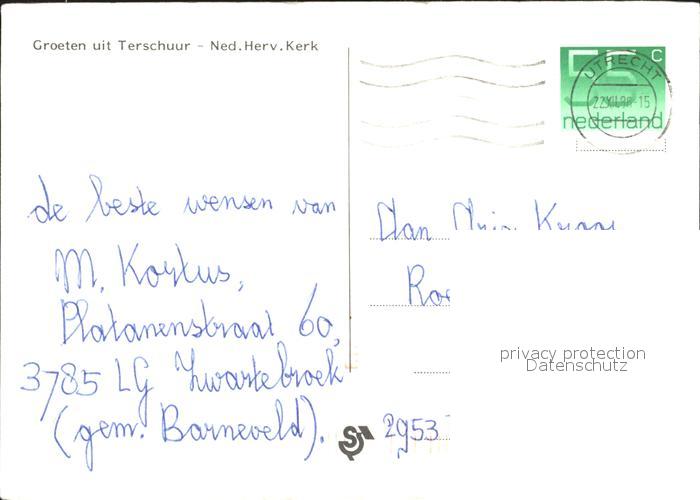 Groeten uit Terschuur - Ned.Herv.Kerk
55 c
nederland
UTRECHT
de beste wensen van
M. Kortus,
Platanenstraat 60,
3785 LG Zwartebroek
(gem. Barneveld).
Aan
2953
privacy protection
Datenschutz